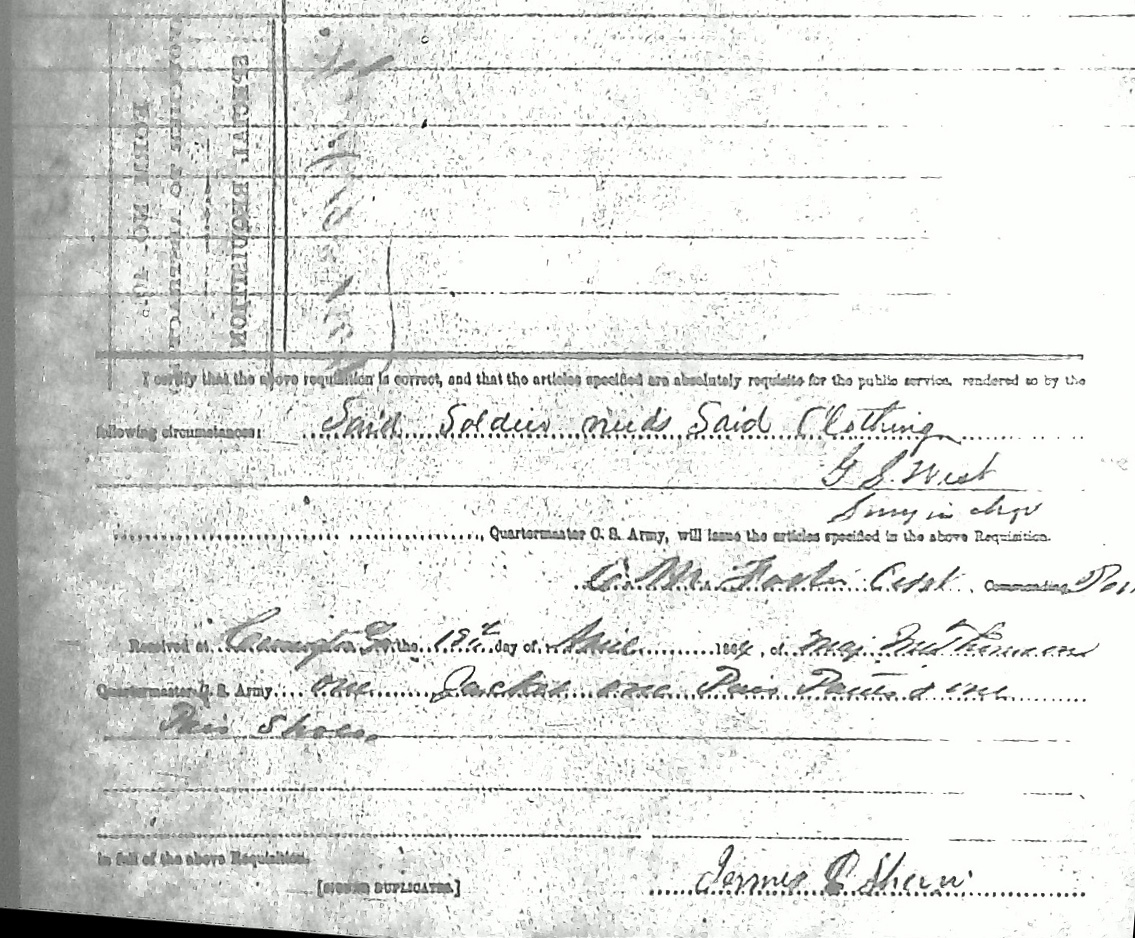 SPECIAL REQUISITION
FORM NO. 40
I certify that the above requisition is correct, and that the articles specified are absolutely requisite for the public service, rendered so by the
following circumstances: Said Soldier needs Said Clothing
G S. West
Surg in chge
Quartermaster C. S. Army, will issue the articles specified in the above Requisition.
C. M. Foster Capt. Commanding
Received at Covington Ga the 18th day of April 1864, of Maj
Quartermaster C. S. Army one Jacket one Pair Pants & one
Pair Shoes
in full of the above Requisition.
[SIGNED DUPLICATES.] James